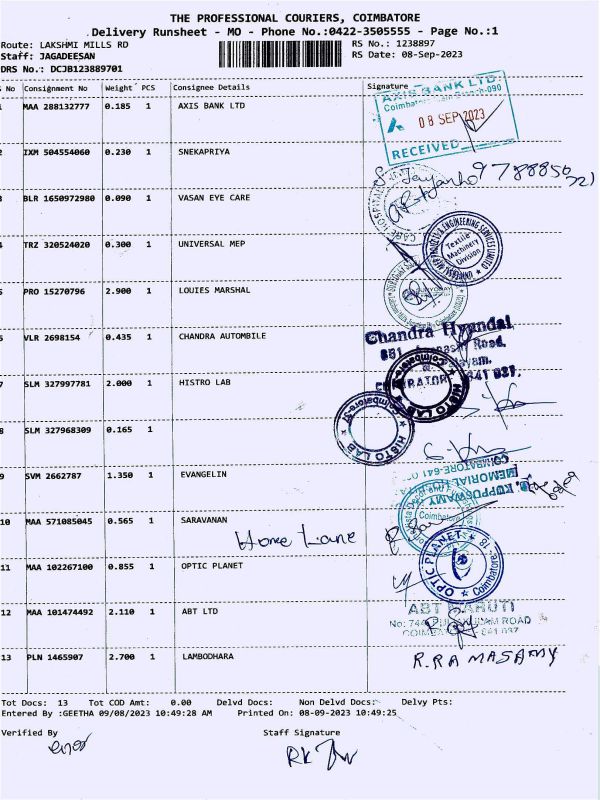 THE PROFESSIONAL COURIERS, COIMBATORE
Delivery Runsheet - MO - Phone No.:0422-3505555 - Page No.:1
Route: LAKSHMI MILLS RD
RS No.: 1238897
Staff: JAGADEESAN
RS Date: 08-Sep-2023
DRS No.: DCJB123889701
No Consignment No Weight PCS Consignee Details Signature
MAA 288132777 0.185 1 AXIS BANK LTD
AXIS BANK LTD.
08 SEP 2023
RECEIVED
2 IXM 504554060 0.230 1 SNEKAPRIYA
BLR 1650972980 0.090 1 VASAN EYE CARE
TRZ 320524020 0.300 1 UNIVERSAL MEP
Textile
Machinery
Division
PRO 15270796 2.900 1 LOUIES MARSHAL
VLR 2698154 0.435 1 CHANDRA AUTOMBILE
Chandra Hyundai
Road,
641 037.
SLM 327997781 2.000 1 HISTRO LAB
HISTO LAB
SLM 327968309 0.165 1
HISTO LAB
SVM 2662787 1.350 1 EVANGELIN
KUPPUSWAMY
MEMORIAL
COIMBATORE-641
10 MAA 571085045 0.565 1 SARAVANAN
Home Lane
11 MAA 102267100 0.855 1 OPTIC PLANET
OPTIC PLANET
Coimbatore
12 MAA 101474492 2.110 1 ABT LTD
ABT MARUTI
ROAD
13 PLN 1465907 2.700 1 LAMBODHARA
R.RAMASAMY
Tot Docs: 13 Tot COD Amt: 0.00 Delvd Docs: Non Delvd Docs: Delvy Pts:
Entered By :GEETHA 09/08/2023 10:49:28 AM Printed On: 08-09-2023 10:49:25
Verified By Staff Signature